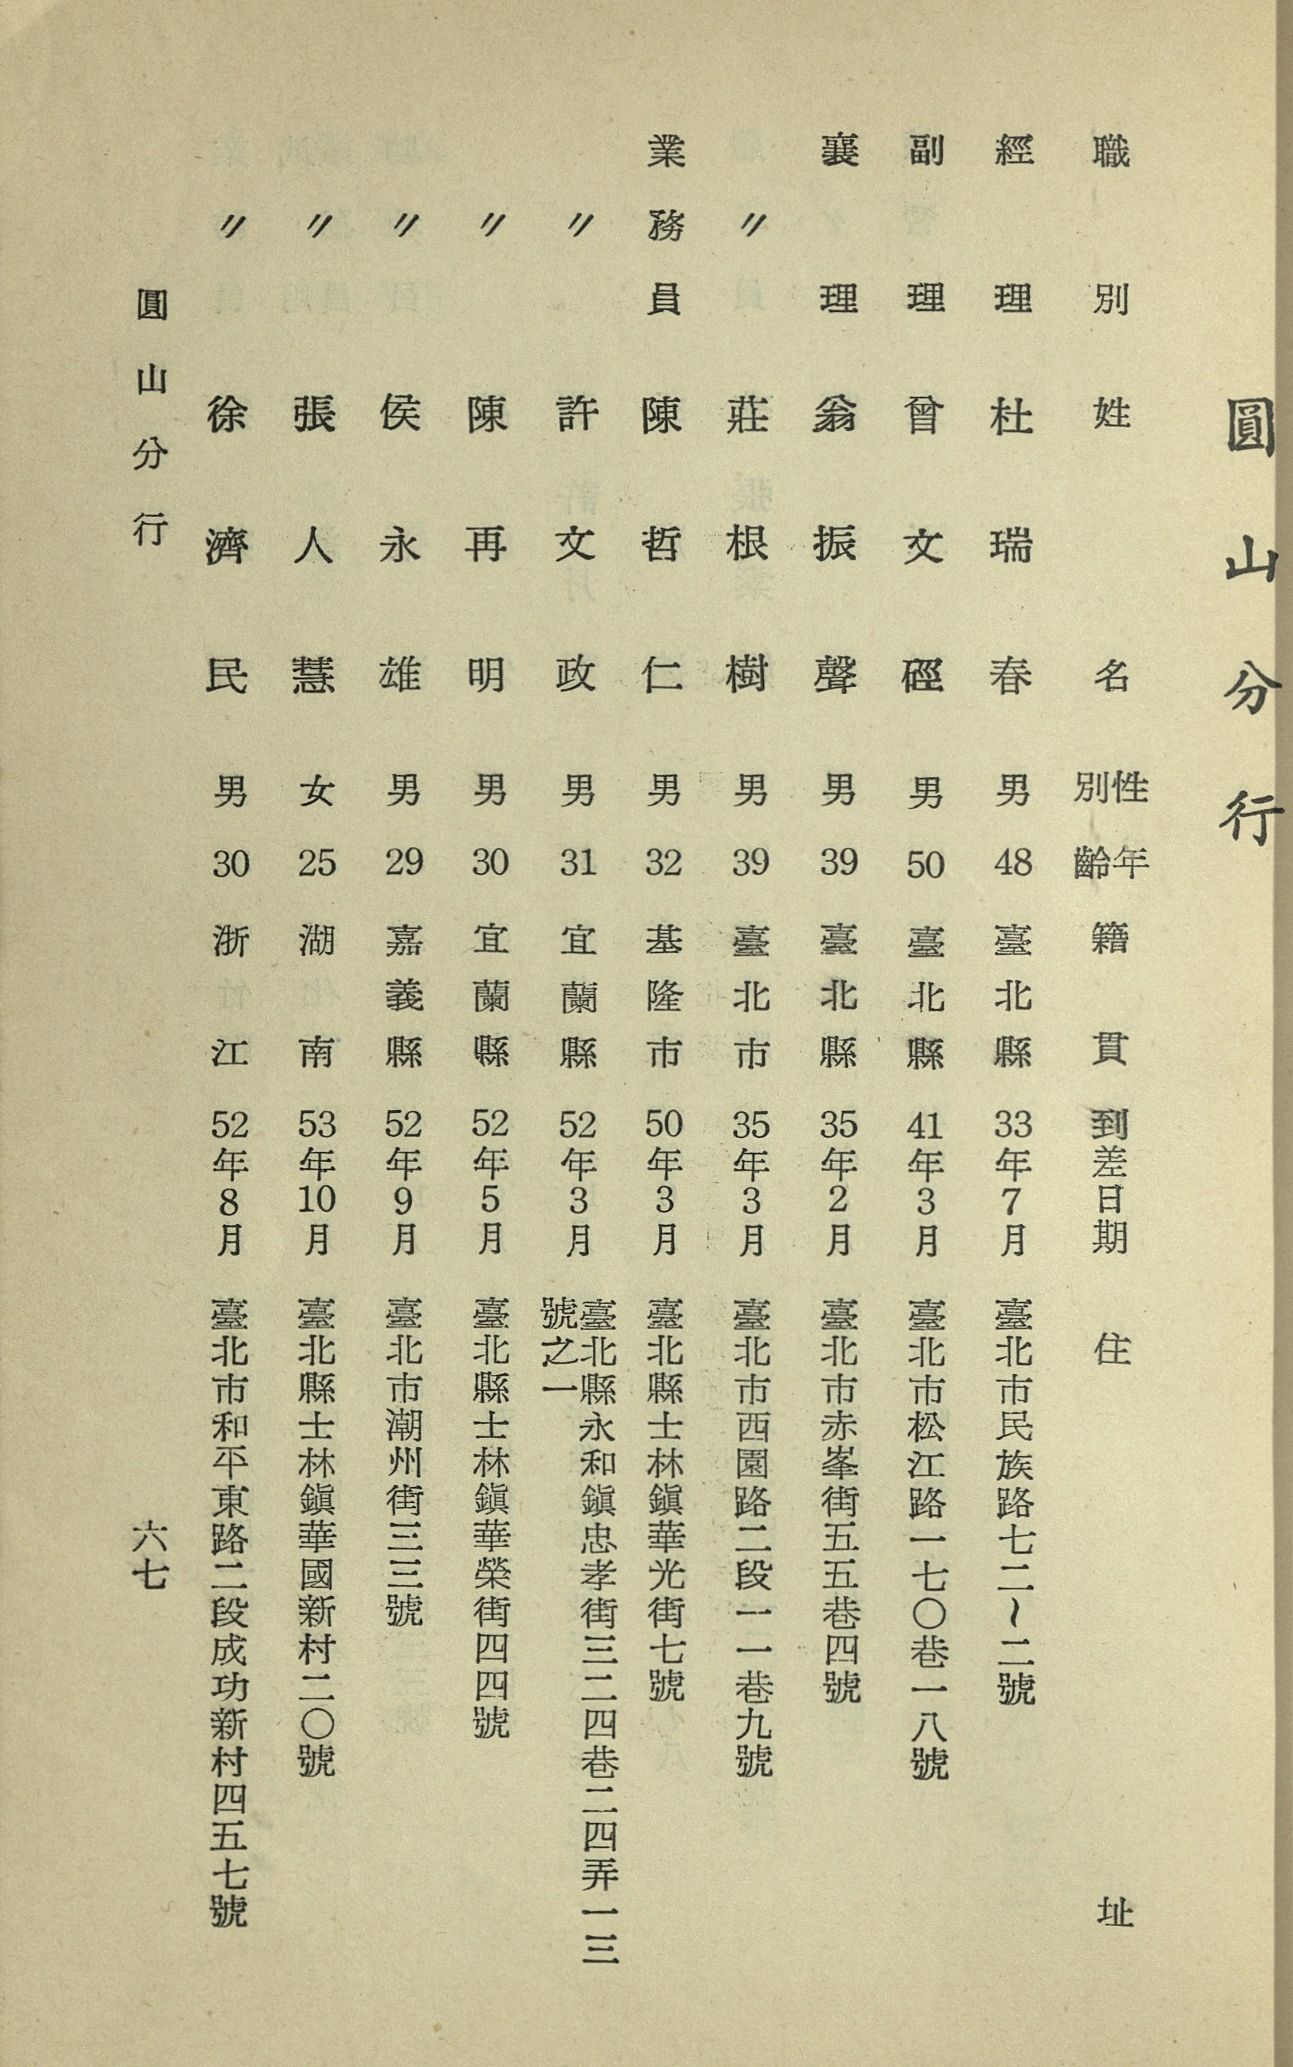 圓山分行
職別 姓名 性別 年齡 籍貫 到差日期 住址
經理 杜瑞春 男 48 臺北縣 33年7月 臺北市民族路七二～二號
副理 曾文硜 男 50 臺北縣 41年3月 臺北市松江路一七〇巷一八號
襄理 翁振聲 男 39 臺北縣 35年2月 臺北市赤峯街五五巷四號
〃 莊根樹 男 39 臺北市 35年3月 臺北市西園路二段一一巷九號
業務員 陳哲仁 男 32 基隆市 50年3月 臺北縣士林鎭華光街七號
〃 許文政 男 31 宜蘭縣 52年3月 臺北縣永和鎭忠孝街三二四巷二四弄一三
號之一
〃 陳再明 男 30 宜蘭縣 52年5月 臺北縣士林鎭華榮街四四號
〃 侯永雄 男 29 嘉義縣 52年9月 臺北市潮州街三三號
〃 張人慧 女 25 湖南 53年10月 臺北縣士林鎭華國新村二〇號
〃 徐濟民 男 30 浙江 52年8月 臺北市和平東路二段成功新村四五七號
圓山分行
六七